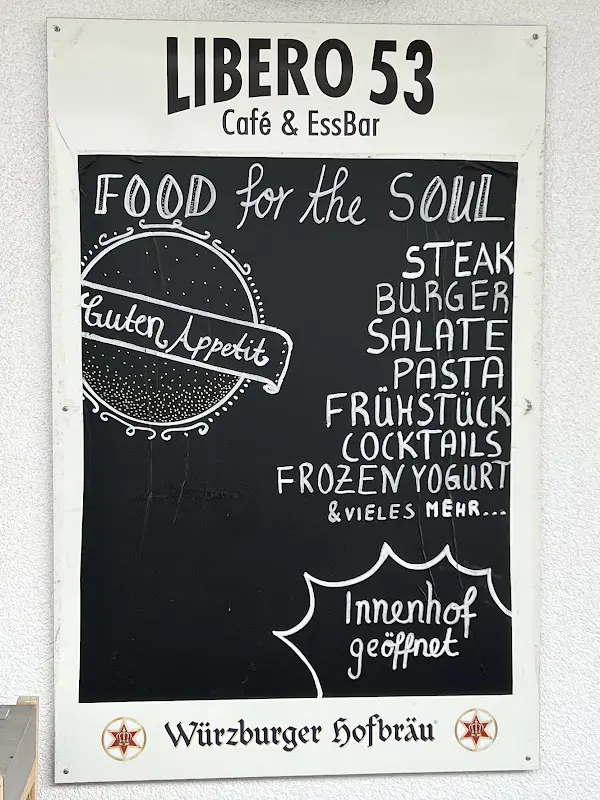 LIBERO 53
Café & EssBar
FOOD for the SOUL
Guten Appetit
STEAK
BURGER
SALATE
PASTA
FRÜHSTÜCK
COCKTAILS
FROZEN YOGURT
& VIELES MEHR...
Innenhof
geöffnet
Würzburger Hofbräu